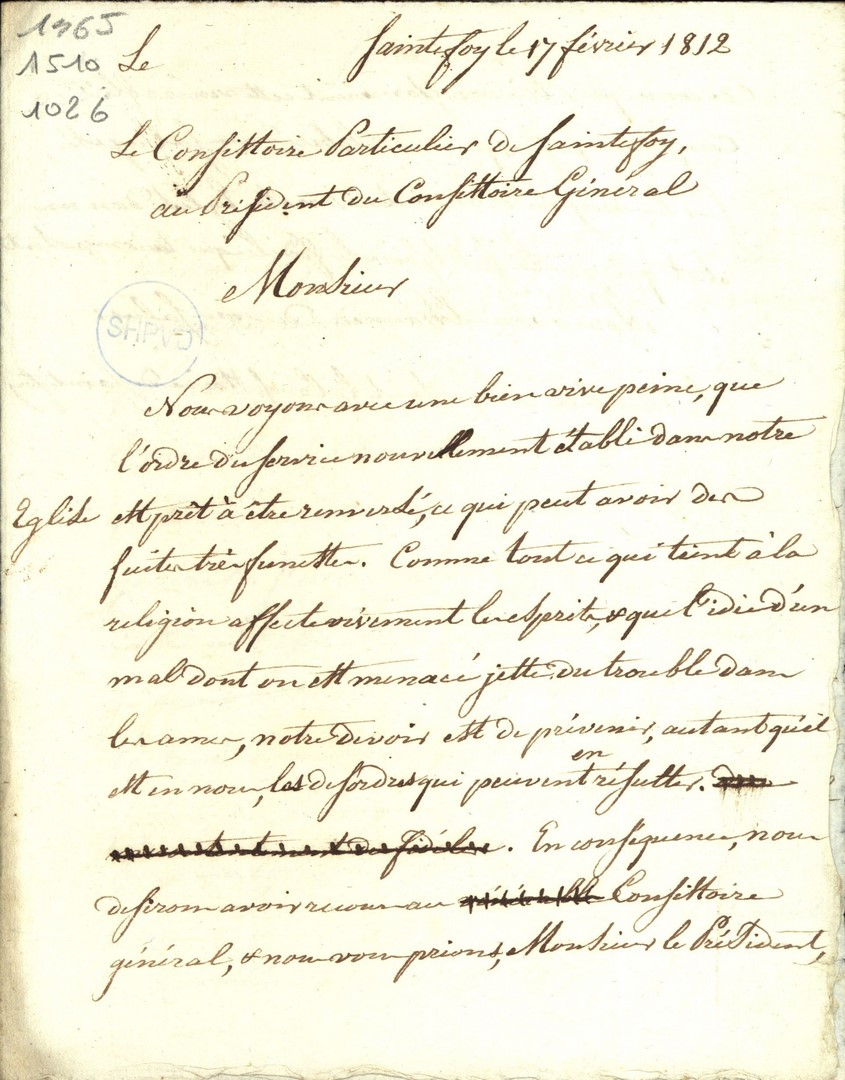 1965
1510
1026
Le
Saintefoy le 17 février 1812
Le Consistoire Particulier de Saintefoy,
au Président du Consistoire Général
Monsieur
SHPVD
Nous voyons avec une bien vive peine, que
l'ordre du service nouvellement établi dans notre
Eglise est prêt à être renversé, ce qui peut avoir des
suites très funestes. Comme tout ce qui tient à la
religion affecte vivement les esprits, & que l'idée d'un
mal dont on est menacé jette du trouble dans
les ames, notre devoir est de prévenir, autant qu'il
est en nous, les desordres qui peuvent en résulter.
. En conséquence, nous
desirons avoir recours au Consistoire
général, & nous vous prions, Monsieur le Président,